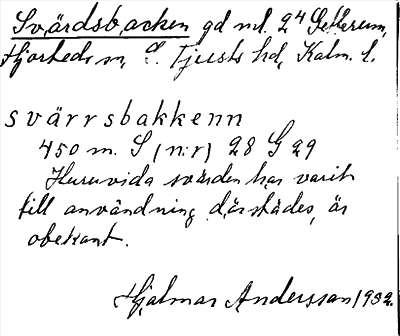 Svärdsbacken gd ml. 2⁴ Getterum,
Hjorteds sn, S. Tjusts hd, Kalm. l.
svärrsbakkenn
450 m. S (n:r) 28 G 29
Huruvida svärden har varit
till användning därstädes, är
obekant.
Hjalmar Andersson 1932.